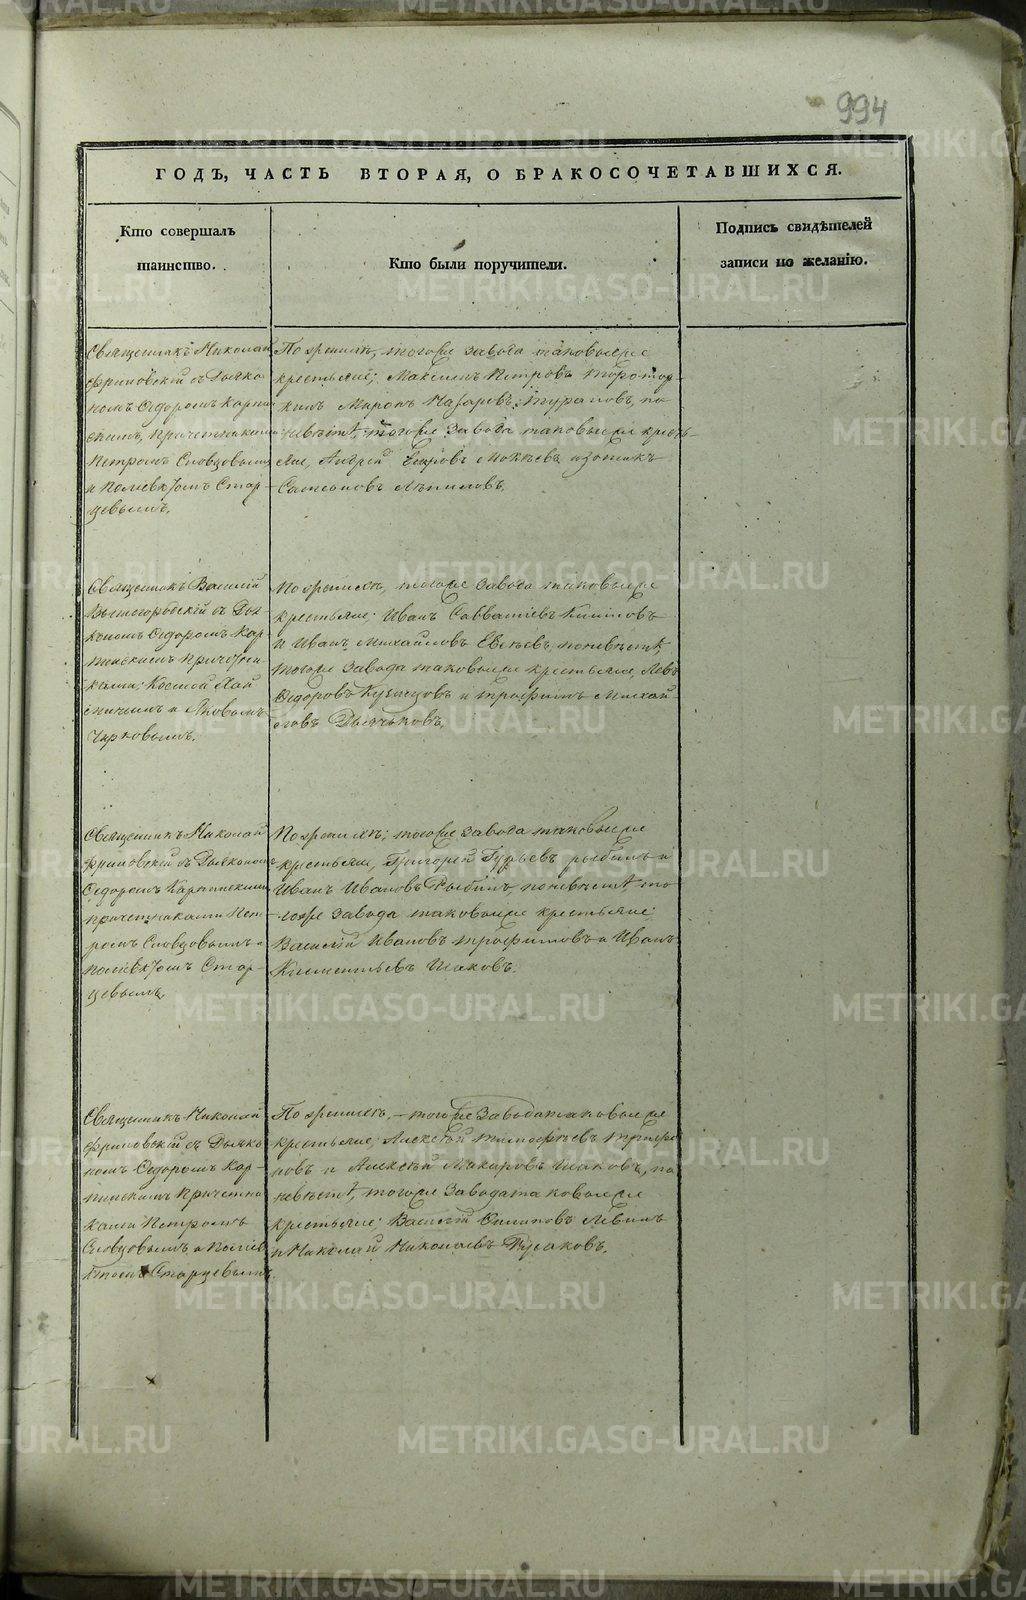 994
ГОДЪ, ЧАСТЬ ВТОРАЯ, О БРАКОСОЧЕТАВШИХСЯ.
Кто совершалъ
таинство.
Кто были поручители.
Подпись свидѣтелей
записи по желанію.
Священникъ Николай
съ Дьяко
номъ Ѳедоромъ Карпи
скимъ, Причетниками
Петромъ Словцовымъ
и Поліевктомъ Стар
цевымъ.
По женихѣ, тогоже завода таковыеже
крестьяне; Максимъ Петровъ
Миронъ Назаровъ по
невѣстѣ, тогоже завода таковыеже кресть
яне, Андрей
Самсоновъ
Священникъ Василій
съ Дья
кономъ Ѳедоромъ Кар
пинскимъ Причетни
ками; Космой
и Яковомъ
По женихѣ, тогоже завода таковыеже
крестьяне; Иванъ Савватіевъ
и Иванъ Михайловъ по невѣстѣ,
тогоже завода таковыеже крестьяне, Левъ
Ѳедоровъ Кузнецовъ и Трофимъ Михай
ловъ Дьячковъ.
Священникъ Николай
съ Дьякономъ
Ѳедоромъ Карпинскимъ
причетниками Пет
ромъ Словцовымъ и
Поліевктомъ Стар
цевымъ.
По женихѣ; тогоже завода таковыеже
крестьяне, Григорей Гурьевъ Рыбинъ и
Иванъ Ивановъ Рыбинъ, по невѣстѣ то
гоже завода таковыеже крестьяне;
Василій Ивановъ Трофимовъ и Иванъ
Климентьевъ Исаковъ.
Священникъ Николай
съ Дьяко
номъ Ѳедоромъ Кар
пинскимъ Причетни
ками Петромъ
Словцовымъ и Поліев
ктомъ Старцевымъ
По женихѣ, тогоже завода таковыеже
крестьяне, Алексѣй Тимофѣевъ
и Алексѣй Макаровъ Исаковъ, по
невѣстѣ, тогоже завода таковыеже
крестьяне; Василій Филиповъ Левинъ
и Николай Николаевъ Русаковъ.
METRIKI.GASO-URAL.RU